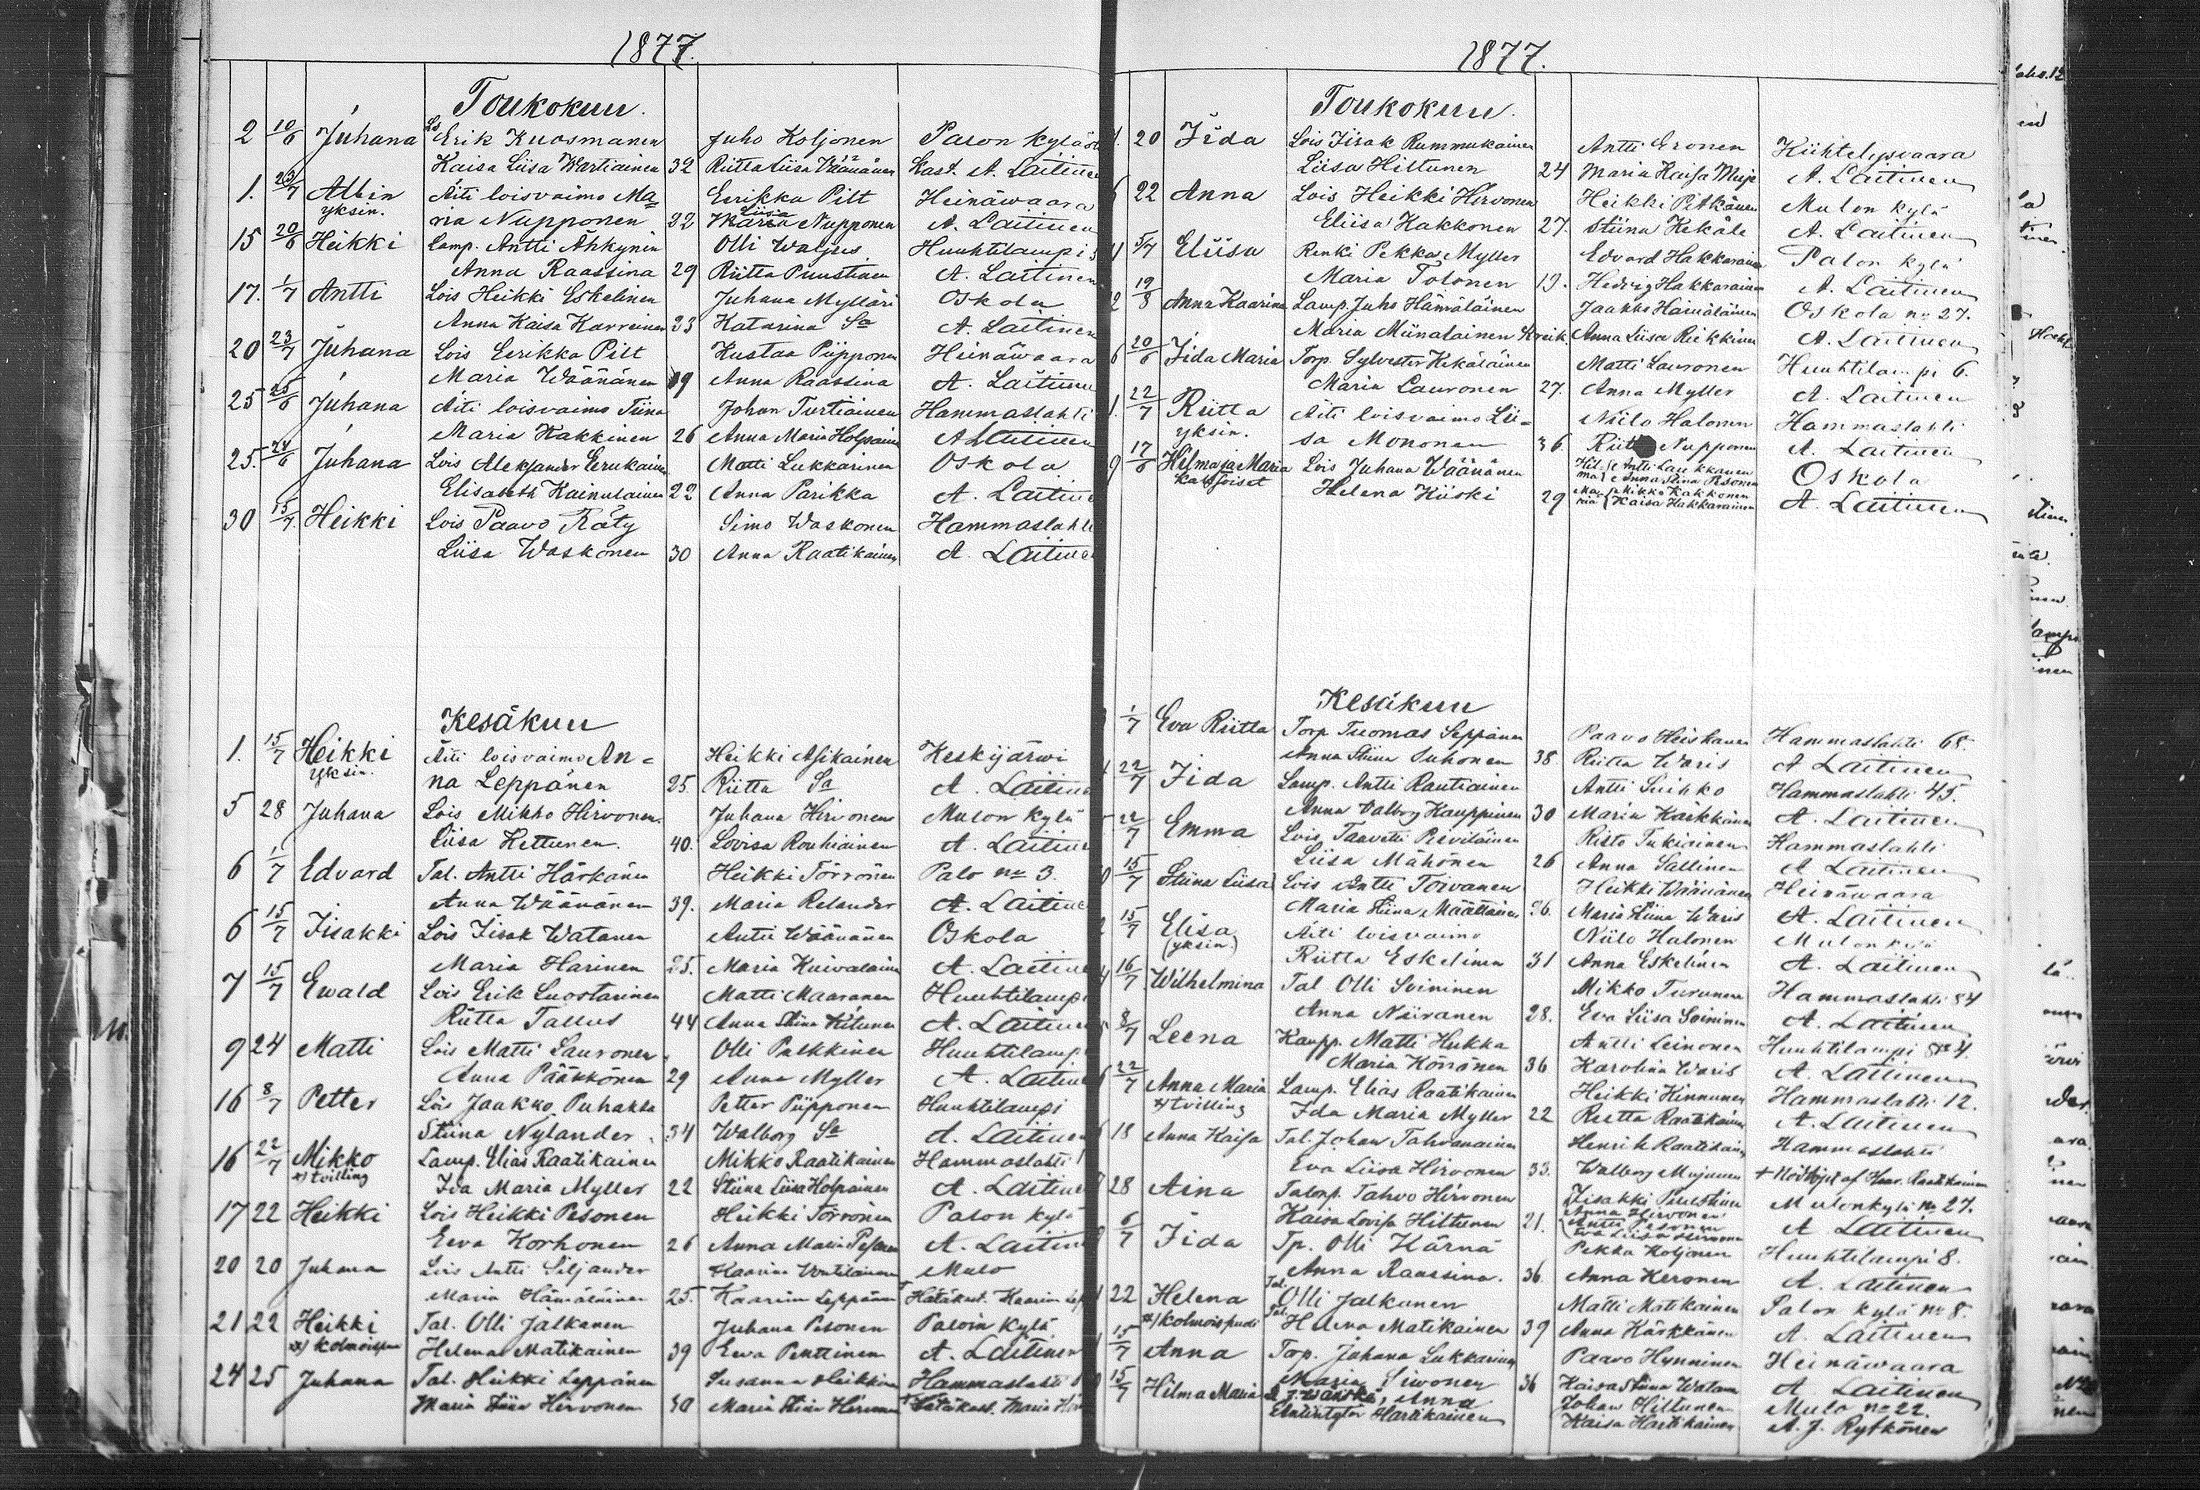 1877.
Toukokuu.
2 10/6 Juhana Ls Erik Kuosmanen Juho Koljonen Palon kyläs
Kaisa Liisa Wartiainen 32 Riitta Liisa Väänänen Kast. A. Laitinen
1. 23/7 Albin Äiti loisvaimo Ma= Eerikka Pilt Heinäwaara
yksin. ria Nupponen 32 Maria Liisa Nupponen A. Laitinen
15 20/6 Heikki Lamp. Antti Ähkynin Olli Waljus Huuhtilampi 3
Anna Raassina 29 Riitta Puustinen A. Laitinen
17. 1/7 Antti Lois Heikki Eskelinen Juhana Mylläri Oskola
Anna Kaisa Karvinen 33 Katarina Sa A. Laitinen
20 23/7 Juhana Lois Eerikka Pilt Kustaa Piipponen Heinäwaara
Maria Wäänänen 19 Anna Raassina A. Laitinen
25 25/6 Juhana Äiti loisvaimo Tiina Johan Turtiainen Hammaslahti
Maria Hakkinen 26 Anna Maria Holpainen A Laitinen
25. 24/6 Juhana Lois Aleksander Eerukainen Matti Lukkarinen Oskola
Elisabeth Kainulainen 22 Anna Parikka A. Laitinen
30 15/7 Heikki Lois Paavo Räty Simo Waskonen Hammaslahti
Liisa Waskonen 30 Anna Raatikainen A. Laitinen
Kesäkuu
1. 15/7 Heikki Äiti loisvaimo An= Heikki Asikainen Keskijärwi
yksin. na Leppänen 25. Riitta Sa A. Laitinen
5 28 Juhana Lois Mikko Hirvonen. Juhana Hirvonen Mulon kylä
Liisa Kettunen. 40. Lovisa Rouhiainen A. Laitinen
6 1/7 Edvard Tal. Antti Härkänen Heikki Törrönen Palo no 3.
Anna Wäänänen 39. Maria Relander A. Laitinen
6 15/7 Iisakki Lois Iisak Watanen Antti Wäänänen Oskola
Maria Harinen 25. Maria Kuivalainen A. Laitinen
7 15/7 Ewald Lois Erik Luostarinen Matti Maaranen Huuhtilampi
Riitta Tallus 44 Anna Stiina A. Laitinen
9 24 Matti Lois Matti Lauronen Olli Pulkkinen Huuhtilampi
Anna Pääkkönen 29 Anna Myller A. Laitinen
16 8/7 Petter Lois Jaakko Puhakka Petter Piipponen Huuhtilampi
Stiina Nylander. 34 Walborg Sa A. Laitinen
16 22/7 Mikko Lamp. Elias Raatikainen Mikko Raatikainen Hammaslahti 1
x) tvilling Ida Maria Myller 22 Stiina Liisa Holpainen A. Laitinen
17 22 Heikki Lois Heikki Pesonen Heikki Törrönen Palon kylä
Eeva Korhonen 26 Anna Maria Pesonen A. Laitinen
20 20 Juhana Lois Antti Siljander Kaarina Mulo
Maria Hämäläinen 25. Kaarina Leppänen Hätäkast. Kaarin Lep
21 22 Heikki Tal. Olli Jalkanen Juhana Pesonen Paloin kylä
x) kolmoispuoli Helena Matikainen 39 Eeva Penttinen A. Laitinen
24 25 Juhana Tal. Heikki Leppänen Susanna Heikkinen Hammaslahti
Maria Stiina Hirvonen 30 Maria Stiina Hirvonen Hätäkast. Maria
1877.
Toukokuu.
20 Iida Lois Iisak Rummukainen Antti Eronen Kiihtelysvaara
Liisa Hiltunen 24 Maria Kaisa Muje A. Laitinen
22 Anna Lois Heikki Hirvonen Heikki Pitkänen Mulon kylä
Eliisa Kakkonen 27. Stiina Kekäle A. Laitinen
5/4 Eliisa Renki Pekka Myller Edvard Hakkarainen Palon kylä
Maria Tolonen 19. Hedvig Hakkarainen A. Laitinen
19/8 Anna Kaarina Lamp. Juho Hämäläinen Jaakko Hämäläinen Oskola no 27.
Maria Miinalainen Kreik. Anna Liisa Riekkinen A. Laitinen
6 20/6 Iida Maria Torp. Sylvester Kekäläinen Matti Lauronen Huuhtilampi 6.
Maria Lauronen 27. Anna Myller A. Laitinen
1. 22/7 Riitta Äiti loisvaimo Lii= Niilo Halonen Hammaslahti
yksin. sa Mononen 36. Riitta Nupponen A. Laitinen
9 17/6 Hilma ja Maria Lois Juhana Wäänänen Hil- Antti Laukkanen Oskola
kaksoiset ma Anna Stiina Pesonen
Helena Kiiski 29 Ma- Mikko Kakkonen A. Laitinen
ria Kaisa Hakkarainen
Kesäkuu
1/7 Eva Riitta Torp Tuomas Seppänen Paavo Heiskanen Hammaslahti 68.
Anna Stiina Suhonen 38 Riitta Waris A Laitinen
22/7 Iida Lamp. Antti Rautiainen Antti Suikko Hammaslahti 45.
Anna Valborg Kauppinen 30 Maria Kärkkäinen A. Laitinen
22/7 Emma Lois Taavetti Pieviläinen Risto Tukiainen Hammaslahti
Liisa Mähönen 26 Anna Sallinen A Laitinen
15/7 Stiina Liisa Lois Antti Toivanen Heikki Wäänänen Heinäwaara
Maria Stiina Määttänen 26. Maria Stiina Waris A. Laitinen
15/7 Elisa Äiti loisvaimo Niilo Halonen Mulon kylä
(yksin) Riitta Eskelinen 31 Anna Eskelinen A. Laitinen
16/7 Wilhelmina Tal Olli Soininen Mikko Turunen Hammaslahti 84
Anna Niiranen 28. Eva Liisa Soininen A. Laitinen
8/7 Leena Kaupp. Matti Hukka Antti Leinonen Huuhtilampi no 4.
Maria Könönen 36 Karoliina Waris A. Laitinen
22/7 Anna Maria Lamp. Elias Raatikainen Heikki Kinnunen Hammaslahti 12.
x) tvilling Ida Maria Myller 22 Riitta Raatikainen A. Laitinen
18 Anna Kaisa Tal. Johan Tahvanainen Henrik Raatikainen Hammaslahti
Eva Liisa Hirvonen 33. Walborg Mujunen + Nöddöpt af Henr. Raatikainen
28 Aina Talonp. Tahvo Hirvonen Iisakki Puustinen Mulonkylä no 27.
Kaisa Lovisa Hiltunen 21. Anna Hirvonen A Laitinen
Antti Pesonen
6/7 Iida Tp. Olli Kärnä Pekka Koljonen Huuhtilampi 8.
Anna Raassina. 36 Anna Keronen A. Laitinen
22 Helena Tal. Olli Jalkanen Matti Matikainen Palon kylä no 8.
x) kolmoispuoli Helena Matikainen 39 Anna Kärkkänen A. Laitinen
15/7 Anna Torp. Juhana Lukkarinen Paavo Hynninen Heinäwaara
Maria Siwonen 36 Kaisa Stiina Watanen A Laitinen
15/7 Hilma Maria Anna Johan Hiltunen Mulo no 22.
Hartikainen Kaisa Hartikainen A. J. Rytkönen